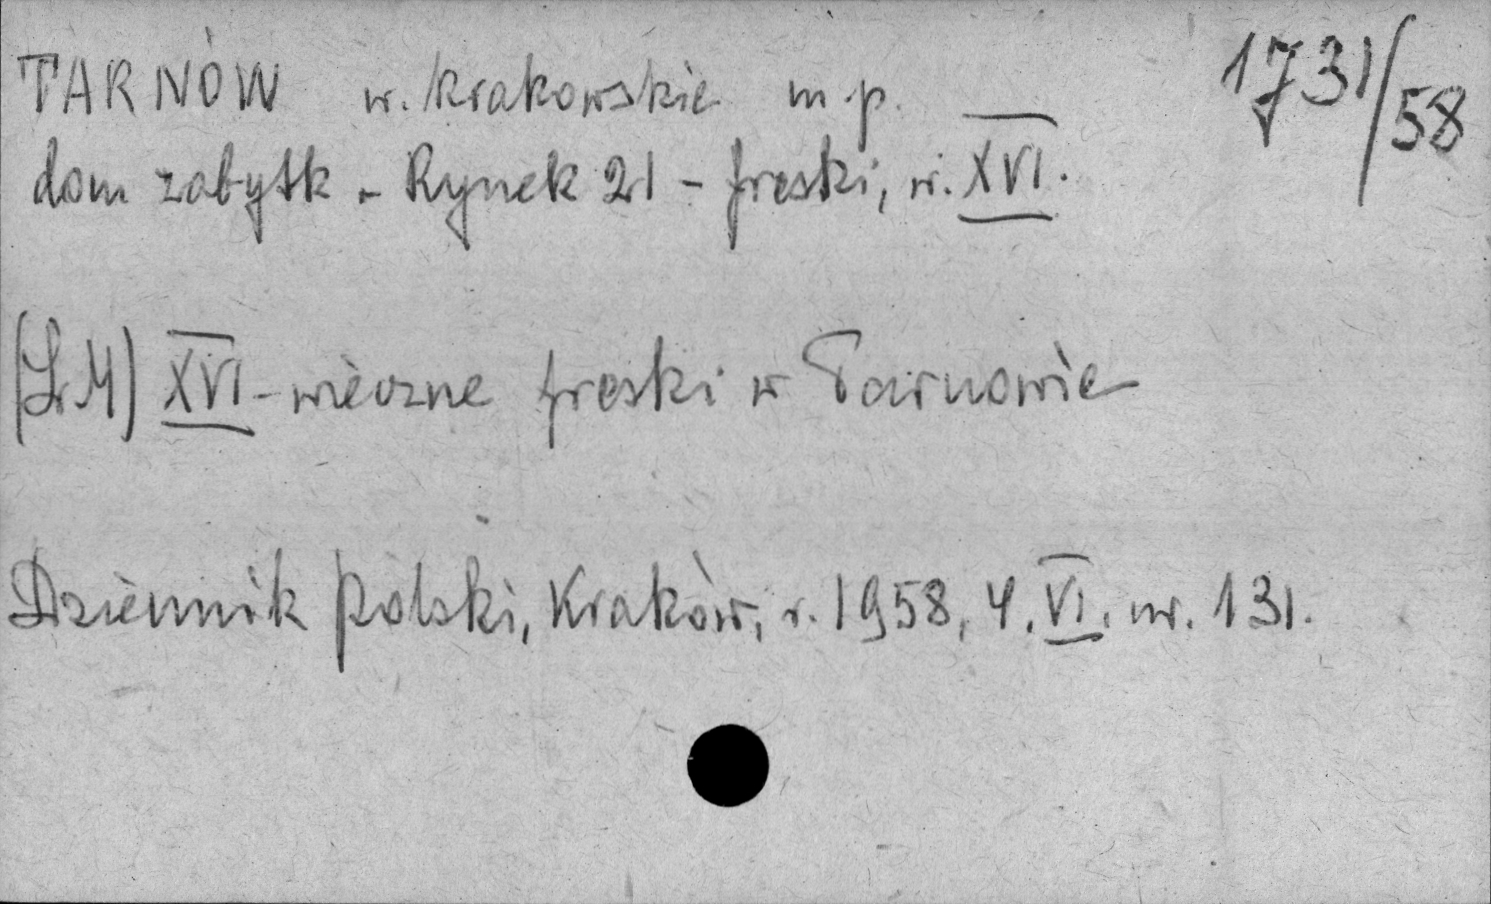 TARNÓW w. krakowskie m.p. 1731/58
dom zabytk. - Rynek 21 - freski, w. XVI.
(Lr.M) XVI-wieczne freski w Tarnowie
Dziennik Polski, Kraków, r. 1958, 4. VI. nr. 131.